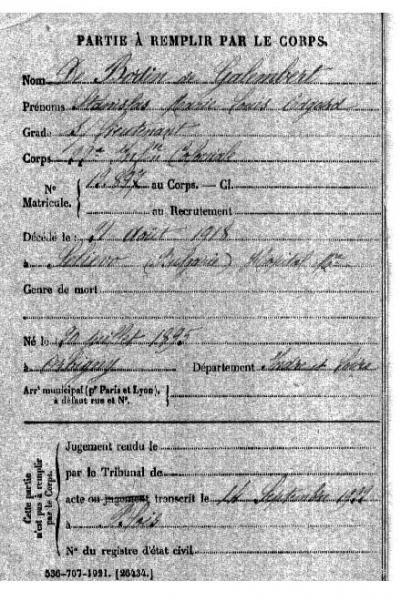 PARTIE À REMPLIR PAR LE CORPS.
Nom De Bodin de Galembert
Prénoms Stanislas Marie Louis Edgard
Grade S. Lieutenant
Corps Colonial
N° Matricule. { au Corps. — Cl.
au Recrutement
Décédé le : 21 Août 1918
à (Bulgarie) Hôpital
Genre de mort
Né le Juillet 1895
à Département Indre et Loire
Arrt municipal (pr Paris et Lyon), à défaut rue et N°.
Cette partie n'est pas à remplir par le Corps.
Jugement rendu le
par le Tribunal de
acte ou jugement transcrit le Septembre
à Blois
N° du registre d'état civil
536-707-1921. [26434.]